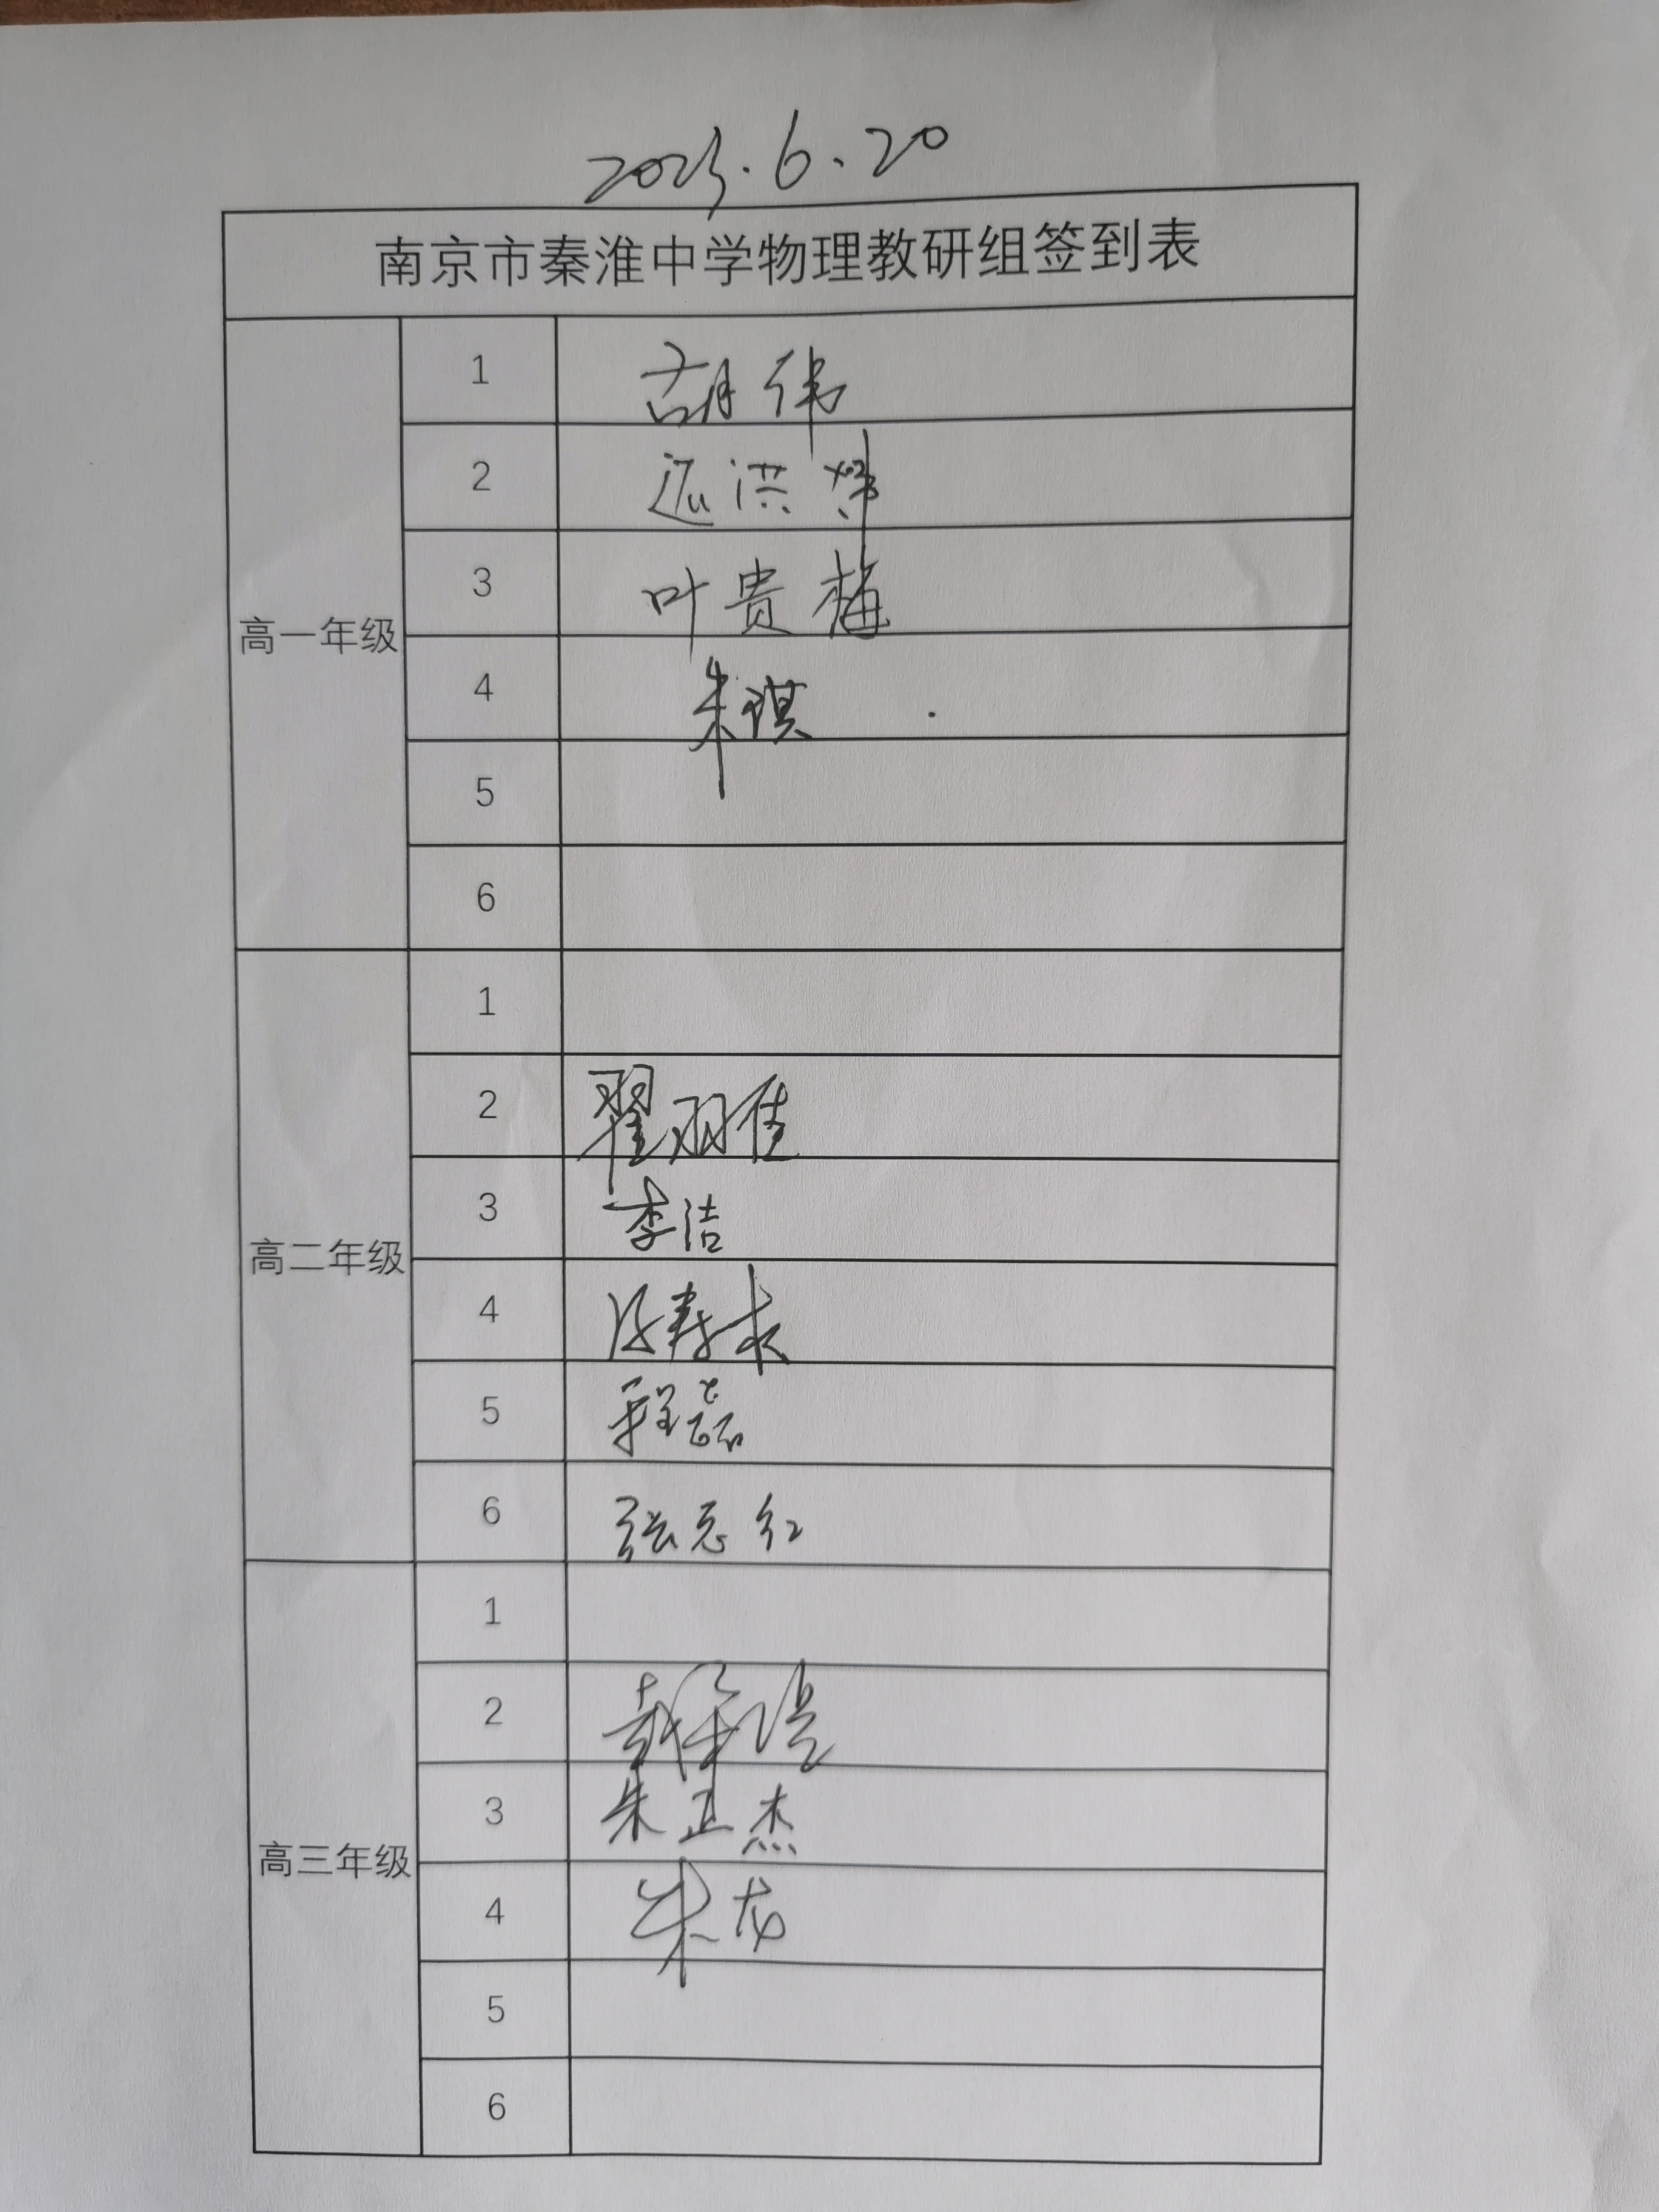 2023.6.20
南京市秦淮中学物理教研组签到表
高一年级
1 胡伟
2 洪
3 叶贵梅
4 朱琪
5
6
高二年级
1
2 翟羽佳
3 李洁
4
5 程磊
6 张志红
高三年级
1
2
3 朱正杰
4 朱龙
5
6